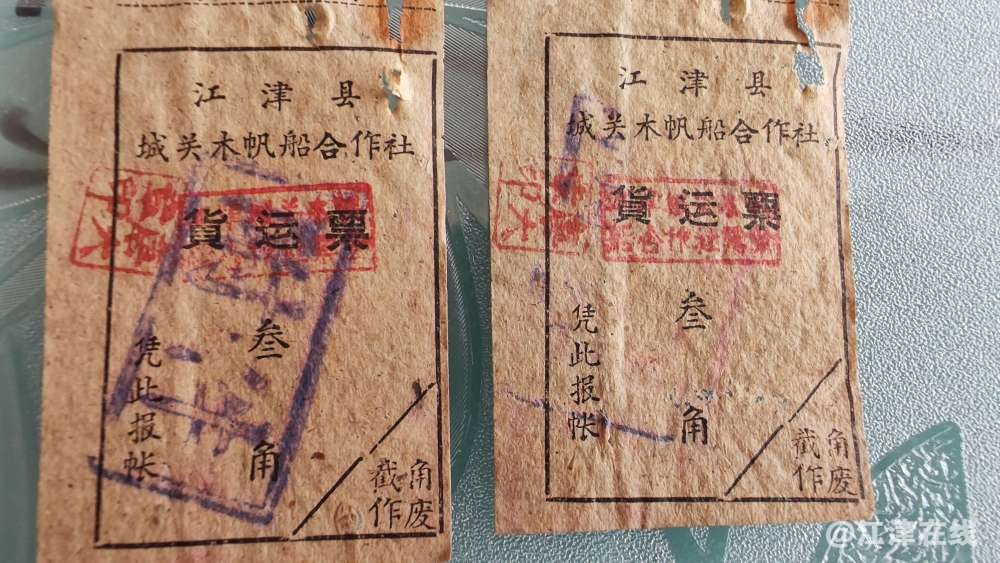 江津县
城关木帆船合作社
貨运票
叁角
凭此报帐
截角作废
江津县
城关木帆船合作社
貨运票
叁角
凭此报帐
截角作废
@江津在线